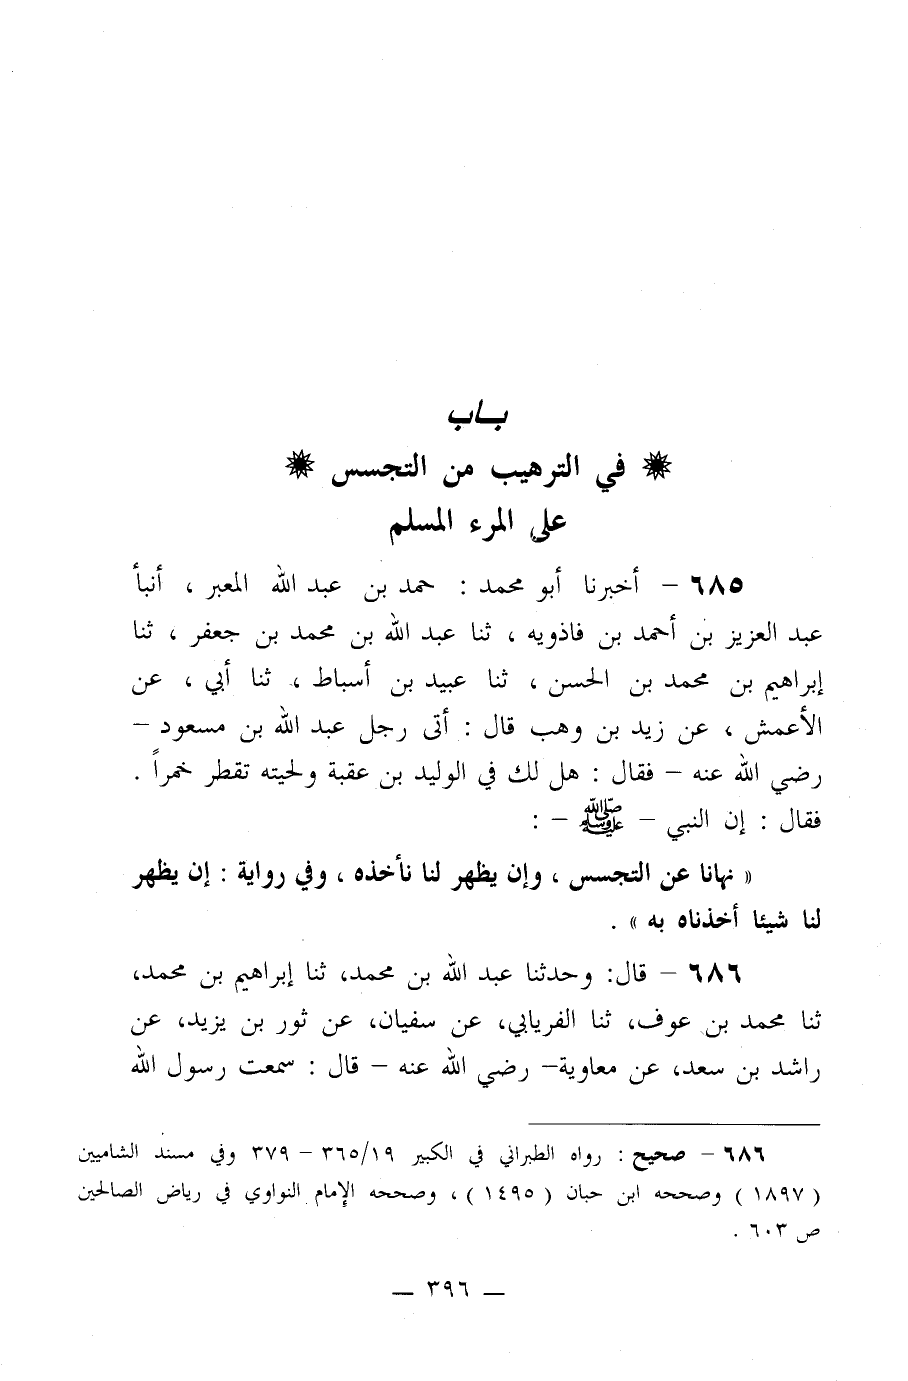 بـاب
في الترهيب من التجسس
على المرء المسلم
٦٨٥ – أخبرنا أبو محمد : حمد بن عبد الله المعبر ، أنبأ
عبد العزيز بن أحمد بن فاذويه ، ثنا عبد الله بن محمد بن جعفر ، ثنا
إبراهيم بن محمد بن الحسن ، ثنا عبيد بن أسباط ، ثنا أبي ، عن
الأعمش ، عن زيد بن وهب قال : أتى رجل عبد الله بن مسعود –
رضي الله عنه – فقال : هل لك في الوليد بن عقبة ولحيته تقطر خمراً .
فقال : إن النبي – ﷺ – :
« نهانا عن التجسس ، وإن يظهر لنا نأخذه ، وفي رواية : إن يظهر
لنا شيئا أخذناه به » .
٦٨٦ – قال: وحدثنا عبد الله بن محمد، ثنا إبراهيم بن محمد،
ثنا محمد بن عوف، ثنا الفريابي، عن سفيان، عن ثور بن يزيد، عن
راشد بن سعد، عن معاوية– رضي الله عنه – قال : سمعت رسول الله
٦٨٦ – صحيح : رواه الطبراني في الكبير ٣٦٥/١٩ – ٣٧٩ وفي مسند الشاميين
( ١٨٩٧ ) وصححه ابن حبان ( ١٤٩٥ ) ، وصححه الإمام النواوي في رياض الصالحين
ص ٦٠٣ .
— ٣٩٦ —